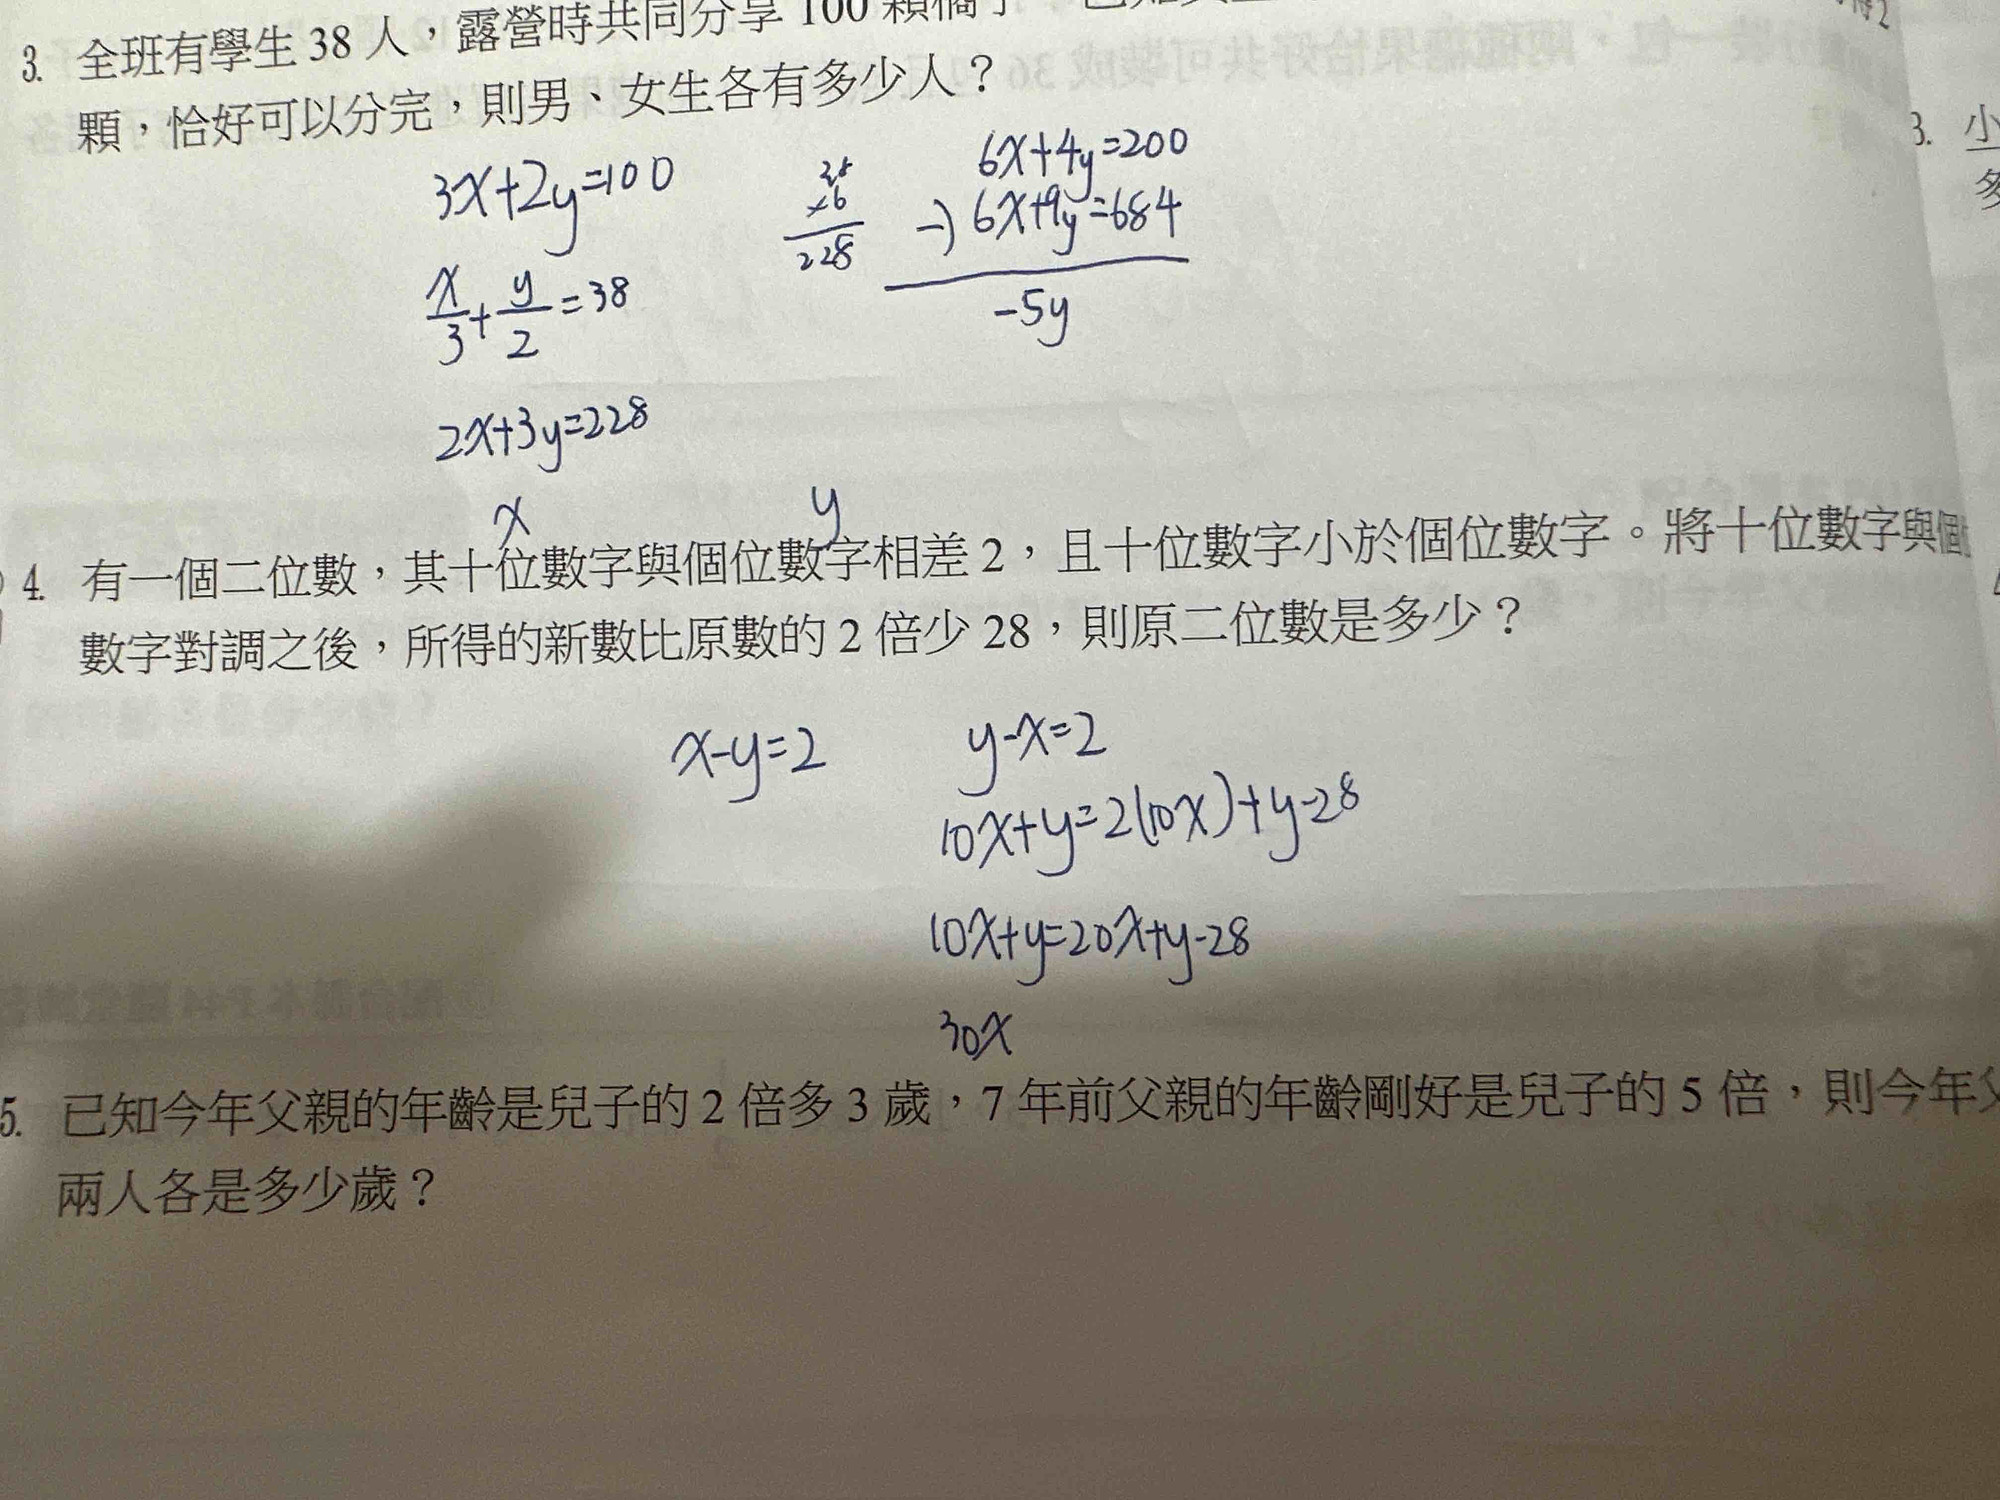 3. 全班有學生 38 人，露營時共同分享 100 顆橘子
顆，恰好可以分完，則男、女生各有多少人？
3x+2y=100
x/3+y/2=38
2x+3y=228
38
×6
228
6x+4y=200
-) 6x+9y=684
-5y
3. 小
多
x y
4. 有一個二位數，其十位數字與個位數字相差 2，且十位數字小於個位數字。將十位數字與個
數字對調之後，所得的新數比原數的 2 倍少 28，則原二位數是多少？
x-y=2
y-x=2
10x+y=2(10x)+y-28
10x+y=20x+y-28
30x
5. 已知今年父親的年齡是兒子的 2 倍多 3 歲，7 年前父親的年齡剛好是兒子的 5 倍，則今年父
兩人各是多少歲？